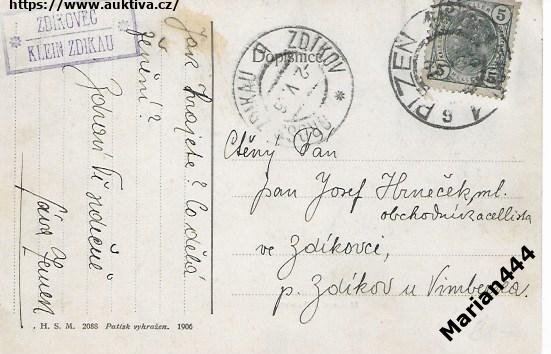 https://www.auktiva.cz/
ZDIKOVEC
KLEIN ZDIKAU
Jak hrajete? Co dělá
ženění?
Zdraví Vás srdečně
Dopisnice
ZDIKOV
ZDIKAU
PLZEŇ
5
5
Ctěný Pán
pan Josef Hrneček, ml.
obchodník a cellista
ve Zdíkovci,
p. Zdíkov u Vimberka.
Marian444
. H. S. M. 2088 Patisk vyhražen. 1906